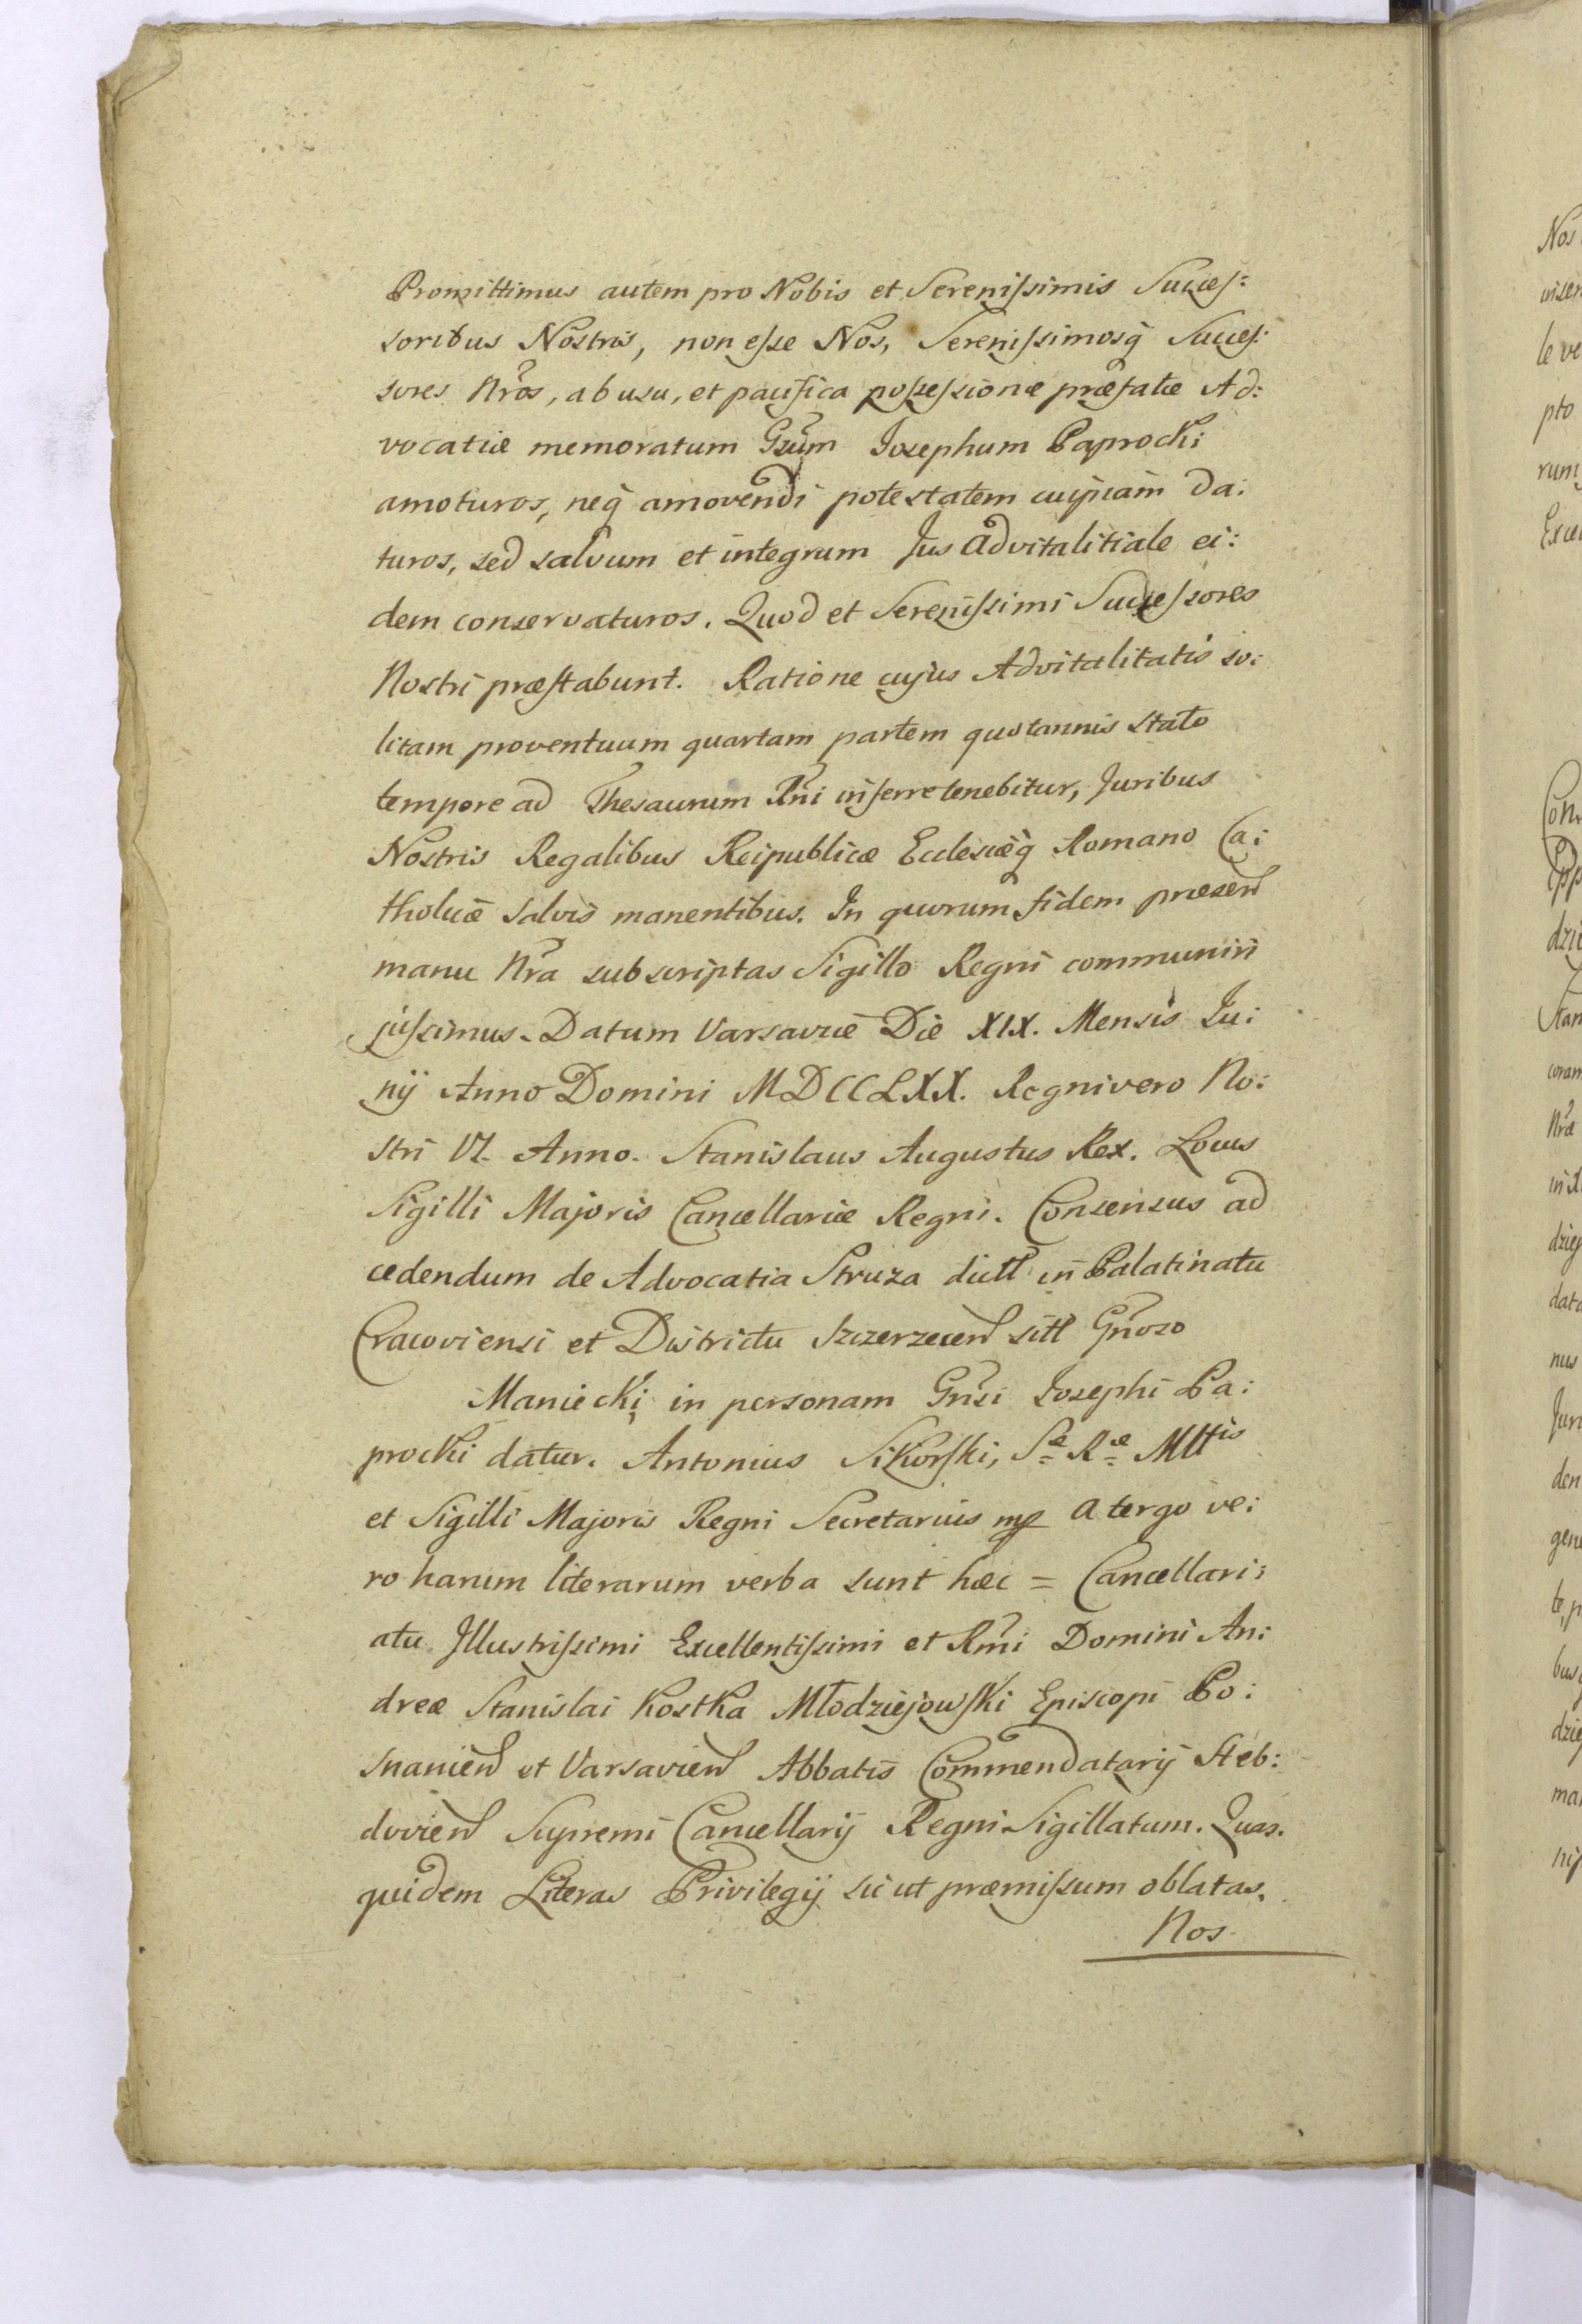 Promittimus autem pro Nobis et Serenissimis Succes:
soribus Nostris, non esse Nos, Serenissimosq̃ Succes:
sores Nr̃os, ab usu, et pacifica possessione præfatæ Ad:
vocatiæ memoratum Gsũm Josephum Paprocki
amoturos, neq̃ amovendi potestatem cuipiam da:
turos, sed salvum et integrum Jus advitalitiale ei:
dem conservaturos. Quod et Serenissimi Successores
Nostri præstabunt. Ratione cujus Advitalitatis so:
litam proventuum quartam partem quotannis stato
tempore ad Thesaurum Rñi inferre tenebitur, Juribus
Nostris Regalibus Reipublicæ Ecclesiæq̃ Romano Ca:
tholicæ salvis manentibus. In quorum fidem præsen
manu Nr̃a subscriptas Sigillo Regni communiri
jussimus. Datum Varsaviæ Die XIX. Mensis Ju:
nij Anno Domini MDCCLXX. Regni vero No:
stri VI. Anno. Stanislaus Augustus Rex. Locus
Sigilli Majoris Cancellariæ Regni. Consensus ad
cedendum de Advocatia Struza dictt in Palatinatu
Cracoviensi et Districtu Szczerzecen sitt Gñoso
Maniecki in personam Gñsi Josephi Pa:
procki datur. Antonius Sikorski, Sᵉ Rᵉ Mttis
et Sigilli Majoris Regni Secretarius mp a tergo ve:
ro harum literarum verba sunt hæc = Cancellari:
atu Illustrissimi Excellentissimi et Rm̃i Domini An:
dreæ Stanislai Kostka Młodziejowski Episcopi Po:
snanien et Varsavien Abbatis Commendatarij Heb:
dovien Supremi Cancellarij Regni Sigillatum. Quas.
quidem Literas Privilegij sic ut præmissum oblatas,
Nos